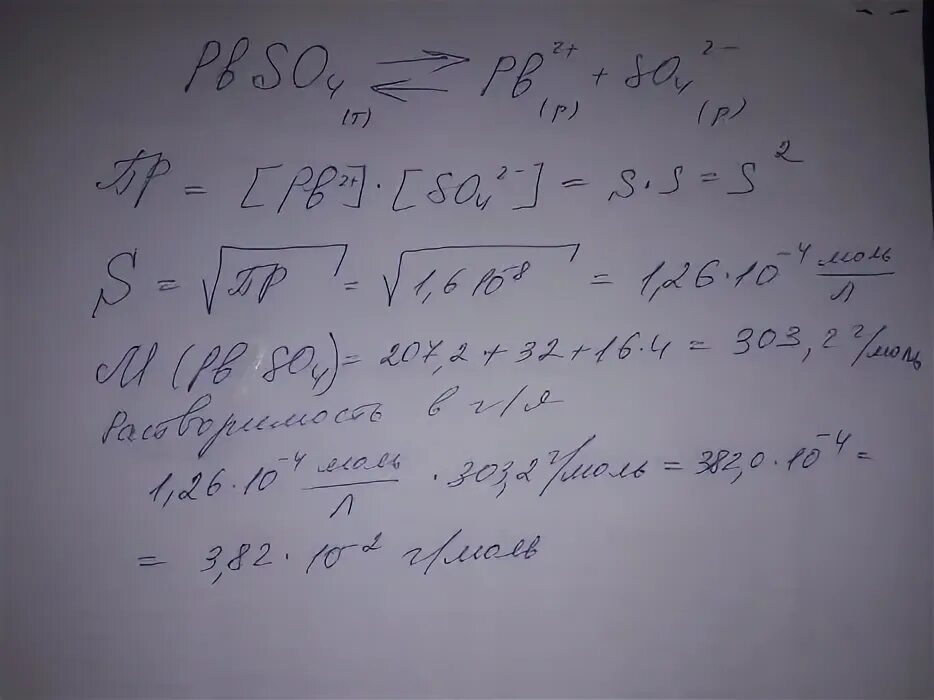 PbSO₄(т) ⇌ Pb²⁺(р) + SO₄²⁻(р)
ПР = [Pb²⁺]·[SO₄²⁻] = S·S = S²
S = √ПР = √1,6 10⁻⁸ = 1,26·10⁻⁴ моль/л
М (PbSO₄) = 207,2 + 32 + 16·4 = 303,2 г/моль
Растворимость в г/л
1,26·10⁻⁴ моль/л · 303,2 г/моль = 382,0·10⁻⁴ =
= 3,82·10⁻² г/моль